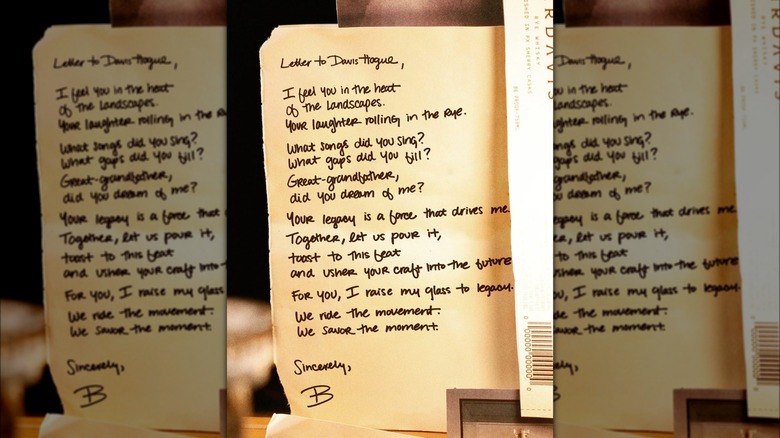 Letter to Davis Hogue,
I feel you in the heat
of the landscapes.
Your laughter rolling in the Rye.
What songs did you sing?
What gaps did you fill?
Great-grandfather,
did you dream of me?
Your legacy is a force that drives me.
Together, let us pour it,
toast to this feat
and usher your craft into the future
For you, I raise my glass to legacy.
We ride the movement.
We savor the moment.
Sincerely,
B
RDAVIS
RYE WHISKY
SHERRY CASKS